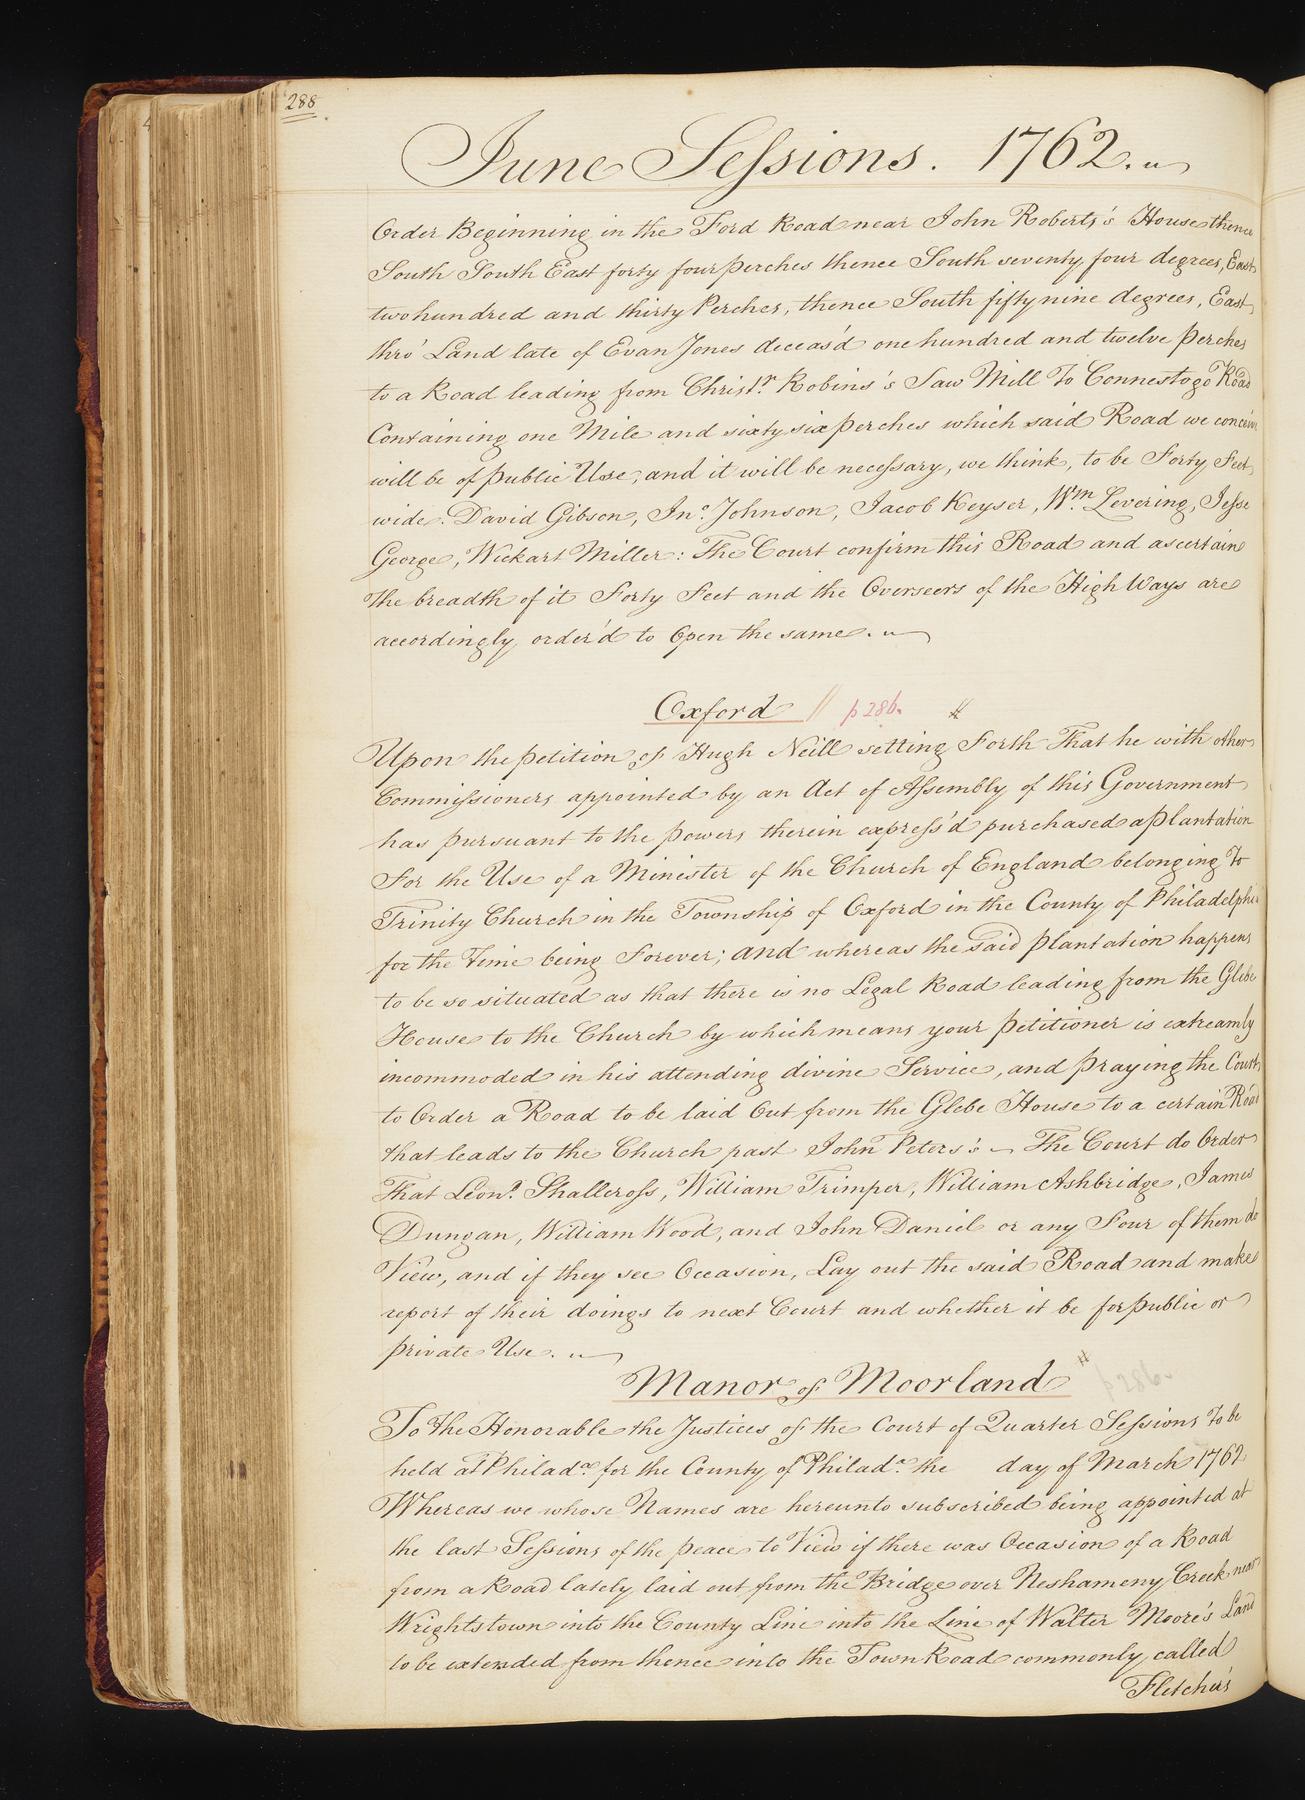 288
June Sessions. 1762.
Order Beginning in the Ford Road near John Roberts's House thence
South South East forty four perches thence South seventy four degrees, East
two hundred and thirty Perches, thence South fifty nine degrees, East
thro' Land late of Evan Jones deceas'd one hundred and twelve perches
to a Road leading from Christr. Robins's Saw Mill To Connestogo Road
Containing one Mile and sixty six perches which said Road we conceive
will be of public Use, and it will be necessary, we think, to be Forty Feet
wide. David Gibson, Jno. Johnson, Jacob Keyser, Wm. Levering, Jesse
George, Wickart Miller: The Court confirm this Road and ascertain
the breadth of it Forty Feet and the Overseers of the High Ways are
accordingly order'd to Open the same.
Oxford // p 286. #
Upon the petition of Hugh Neill setting Forth That he with other
Commissioners appointed by an Act of Assembly of this Government
has pursuant to the powers therein express'd purchased a plantation
For the Use of a Minister of the Church of England belonging To
Trinity Church in the Township of Oxford in the County of Philadelphia
for the Time being Forever; and whereas the said plantation happens
to be so situated as that there is no Legal Road leading from the Glebe
House to the Church by which means your petitioner is extreamly
incommoded in his attending divine Service, and praying the Court
to Order a Road to be laid Out from the Glebe House to a certain Road
that leads to the Church past John Peters's The Court do Order
That Leond. Shallcross, William Trimper, William Ashbridge, James
Dungan, William Wood, and John Daniel or any Four of them do
View, and if they see Occasion, Lay out the said Road and make
report of their doings to next Court and whether it be for public or
private Use.
Manor of Moorland # p 286.
To the Honorable the Justices of the Court of Quarter Sessions To be
held at Philada. for the County of Philada. the day of March 1762
Whereas we whose Names are hereunto subscribed being appointed at
the last Sessions of the peace to View if there was Occasion of a Road
from a Road lately laid out from the Bridge over Neshameny Creek near
Wrightstown into the County Line into the Line of Walter Moore's Land
to be extended from thence into the Town Road commonly called
Fletcher's